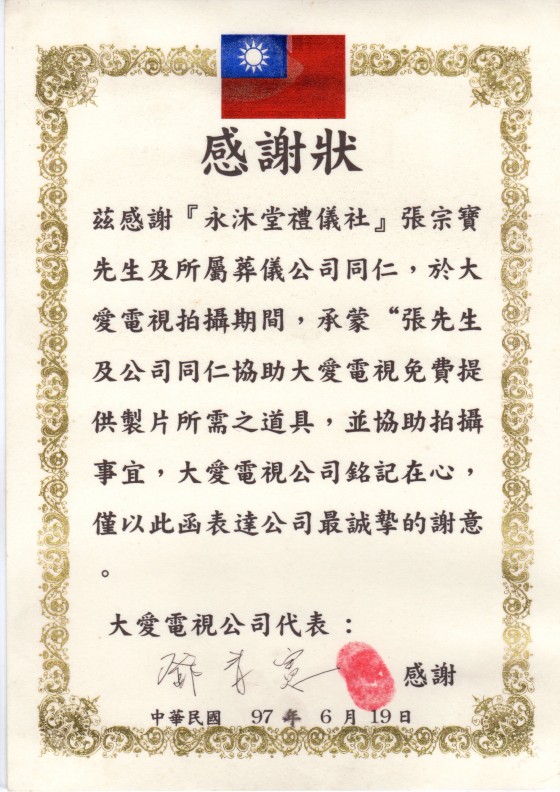 感謝狀
茲感謝『永沐堂禮儀社』張宗寶
先生及所屬葬儀公司同仁，於大
愛電視拍攝期間，承蒙“張先生
及公司同仁協助大愛電視免費提
供製片所需之道具，並協助拍攝
事宜，大愛電視公司銘記在心，
僅以此函表達公司最誠摯的謝意
。
大愛電視公司代表：
感謝
中華民國 97 年 6 月 19 日